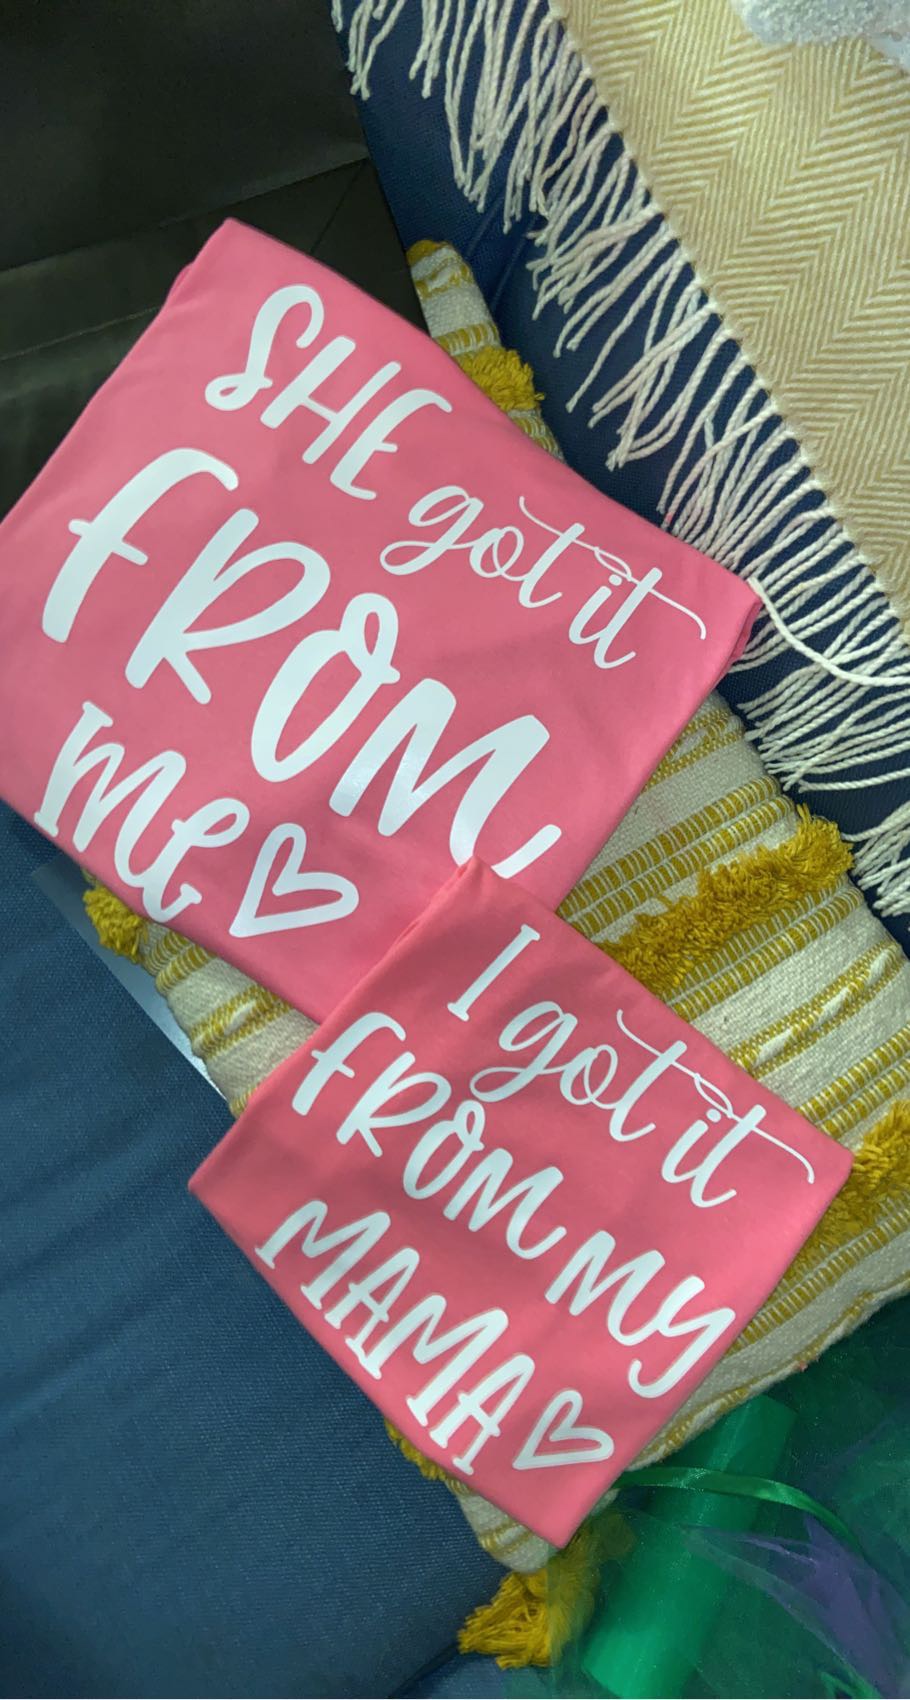 SHE got it
FROM
me
I got it
FROM MY
MAMA